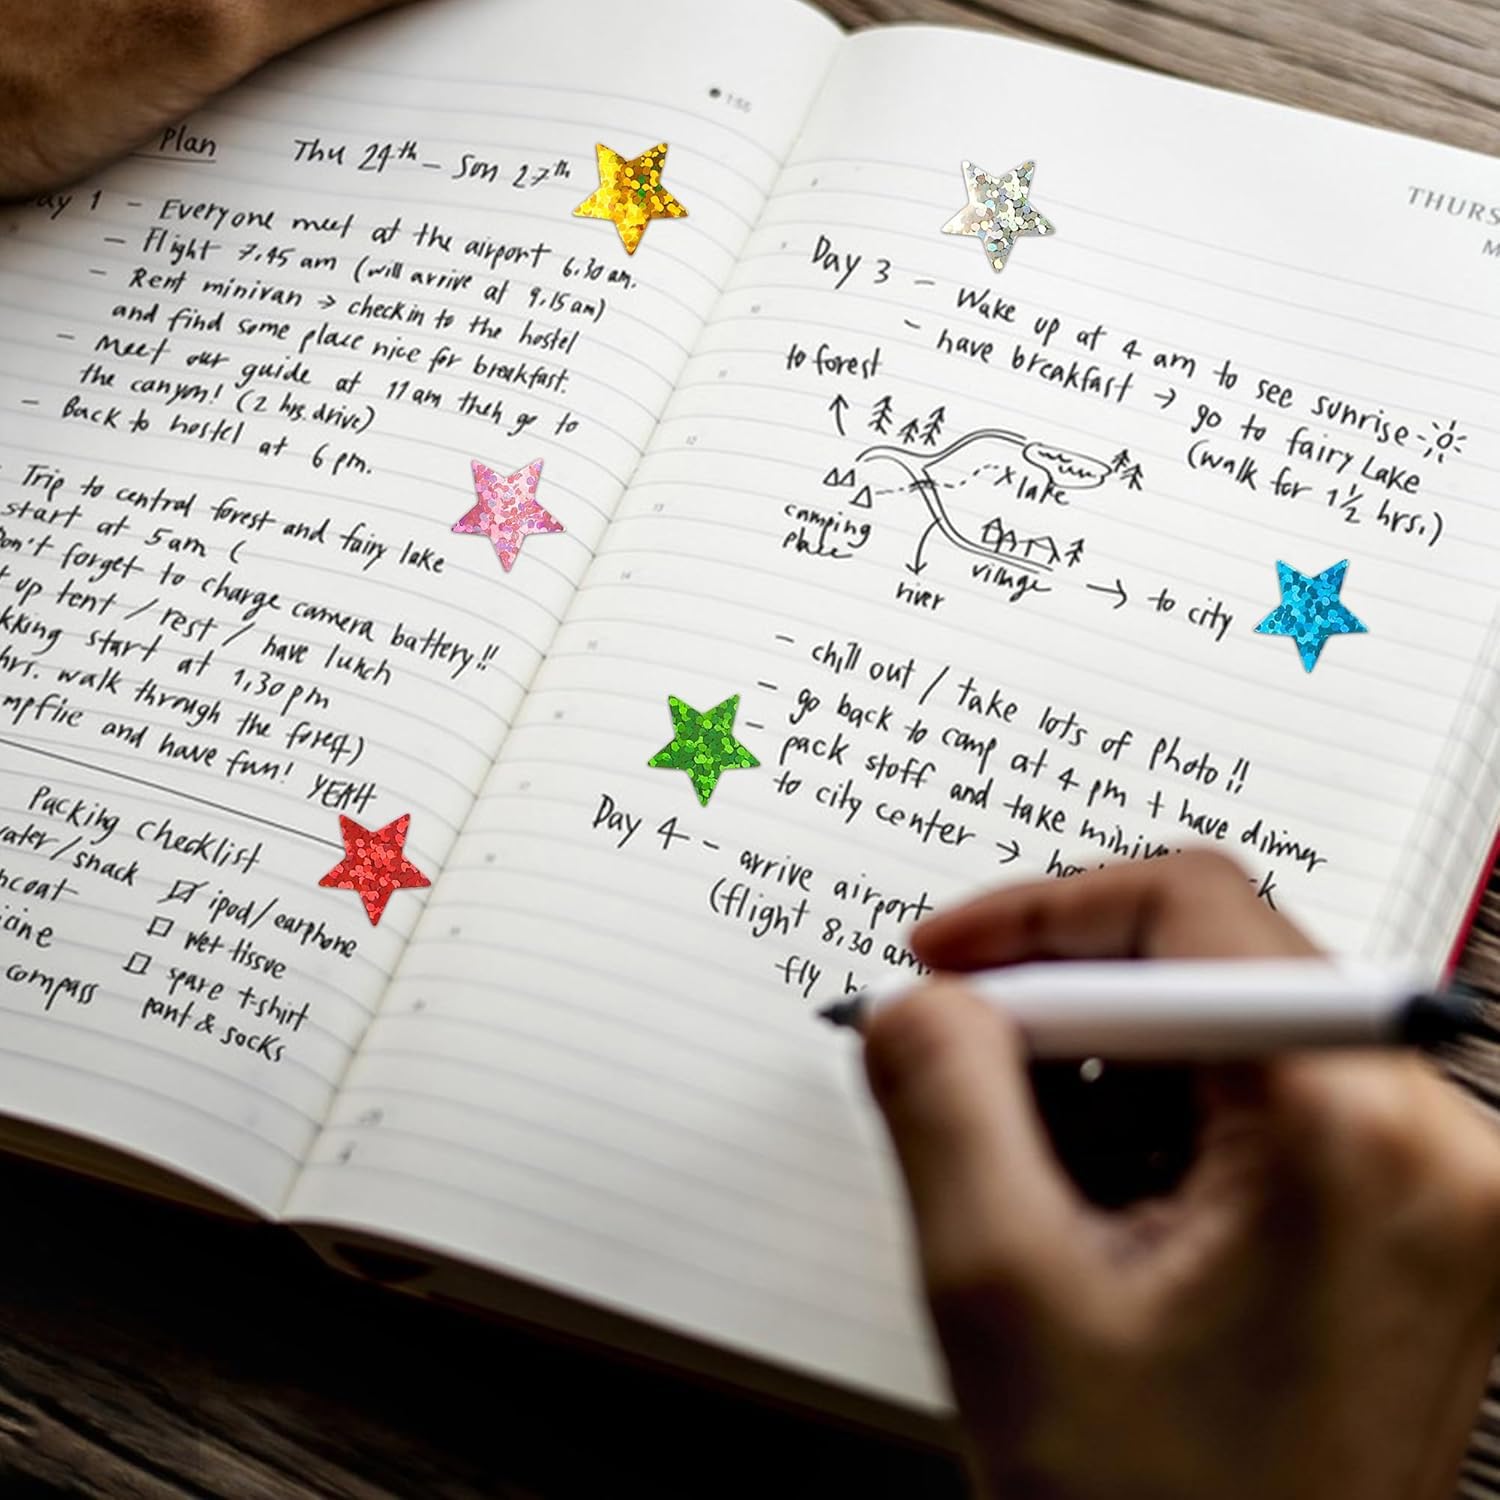 Plan Thu 24th - Sun 27th
Day 1 - Everyone meet at the airport 6.30 am.
- Flight 7.45 am (will arrive at 9.15 am)
- Rent minivan → check in to the hostel
and find some place nice for breakfast.
- Meet our guide at 11 am then go to
the canyon! (2 hrs. drive)
- Back to hostel at 6 pm.
Trip to central forest and fairy lake
start at 5 am (
Don't forget to charge camera battery!!
up tent / rest / have lunch
start at 1.30 pm
hrs. walk through the forest)
and have fun! YEAH
Packing Checklist
water/snack
ipod/earphone
wet tissue
spare t-shirt
pant & socks
compass
THURS
Day 3 - Wake up at 4 am to see sunrise
- have breakfast → go to fairy Lake
(walk for 1 1/2 hrs.)
to forest
X lake
camping
place
river
village
→ to city
- chill out / take lots of photo!!
- go back to camp at 4 pm + have dinner
- pack stuff and take
to city center →
Day 4 - arrive airport
(flight 8.30 am
fly